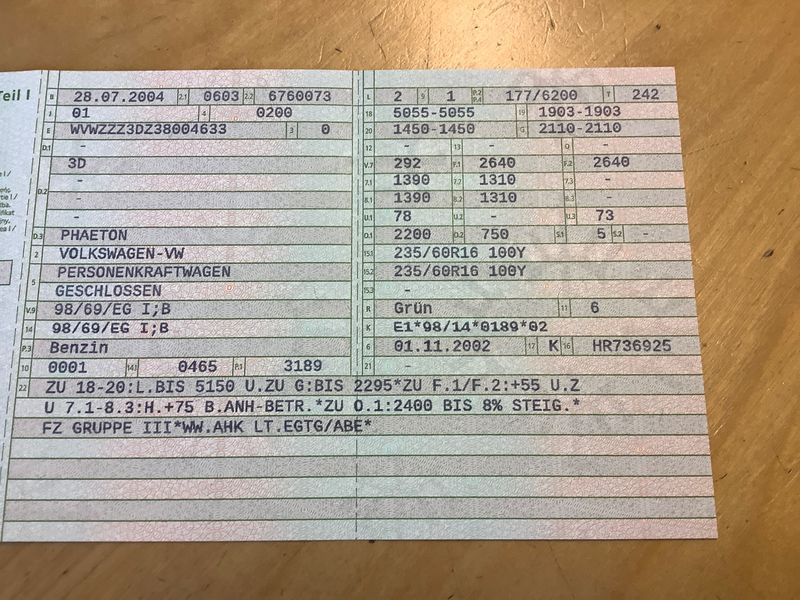 Teil I
B 28.07.2004 2.1 0603 2.2 6760073
J 01 4 0200
E WVWZZZ3DZ38004633 3 0
D.1 -
3D
D.2 -
-
D.3 PHAETON
2 VOLKSWAGEN-VW
5 PERSONENKRAFTWAGEN
GESCHLOSSEN
V.9 98/69/EG I;B
14 98/69/EG I;B
P.3 Benzin
10 0001 14.1 0465 P.1 3189
L 2 9 1 P.2 P.4 177/6200 T 242
18 5055-5055 19 1903-1903
20 1450-1450 G 2110-2110
12 - 13 - Q -
V.7 292 F.1 2640 F.2 2640
7.1 1390 7.2 1310 7.3 -
8.1 1390 8.2 1310 8.3 -
U.1 78 U.2 - U.3 73
O.1 2200 O.2 750 S.1 5 S.2 -
15.1 235/60R16 100Y
15.2 235/60R16 100Y
15.3 -
R Grün 11 6
K E1*98/14*0189*02
6 01.11.2002 17 K 16 HR736925
21 -
22 ZU 18-20:L.BIS 5150 U.ZU G:BIS 2295*ZU F.1/F.2:+55 U.Z
U 7.1-8.3:H.+75 B.ANH-BETR.*ZU O.1:2400 BIS 8% STEIG.*
FZ GRUPPE III*WW.AHK LT.EGTG/ABE*